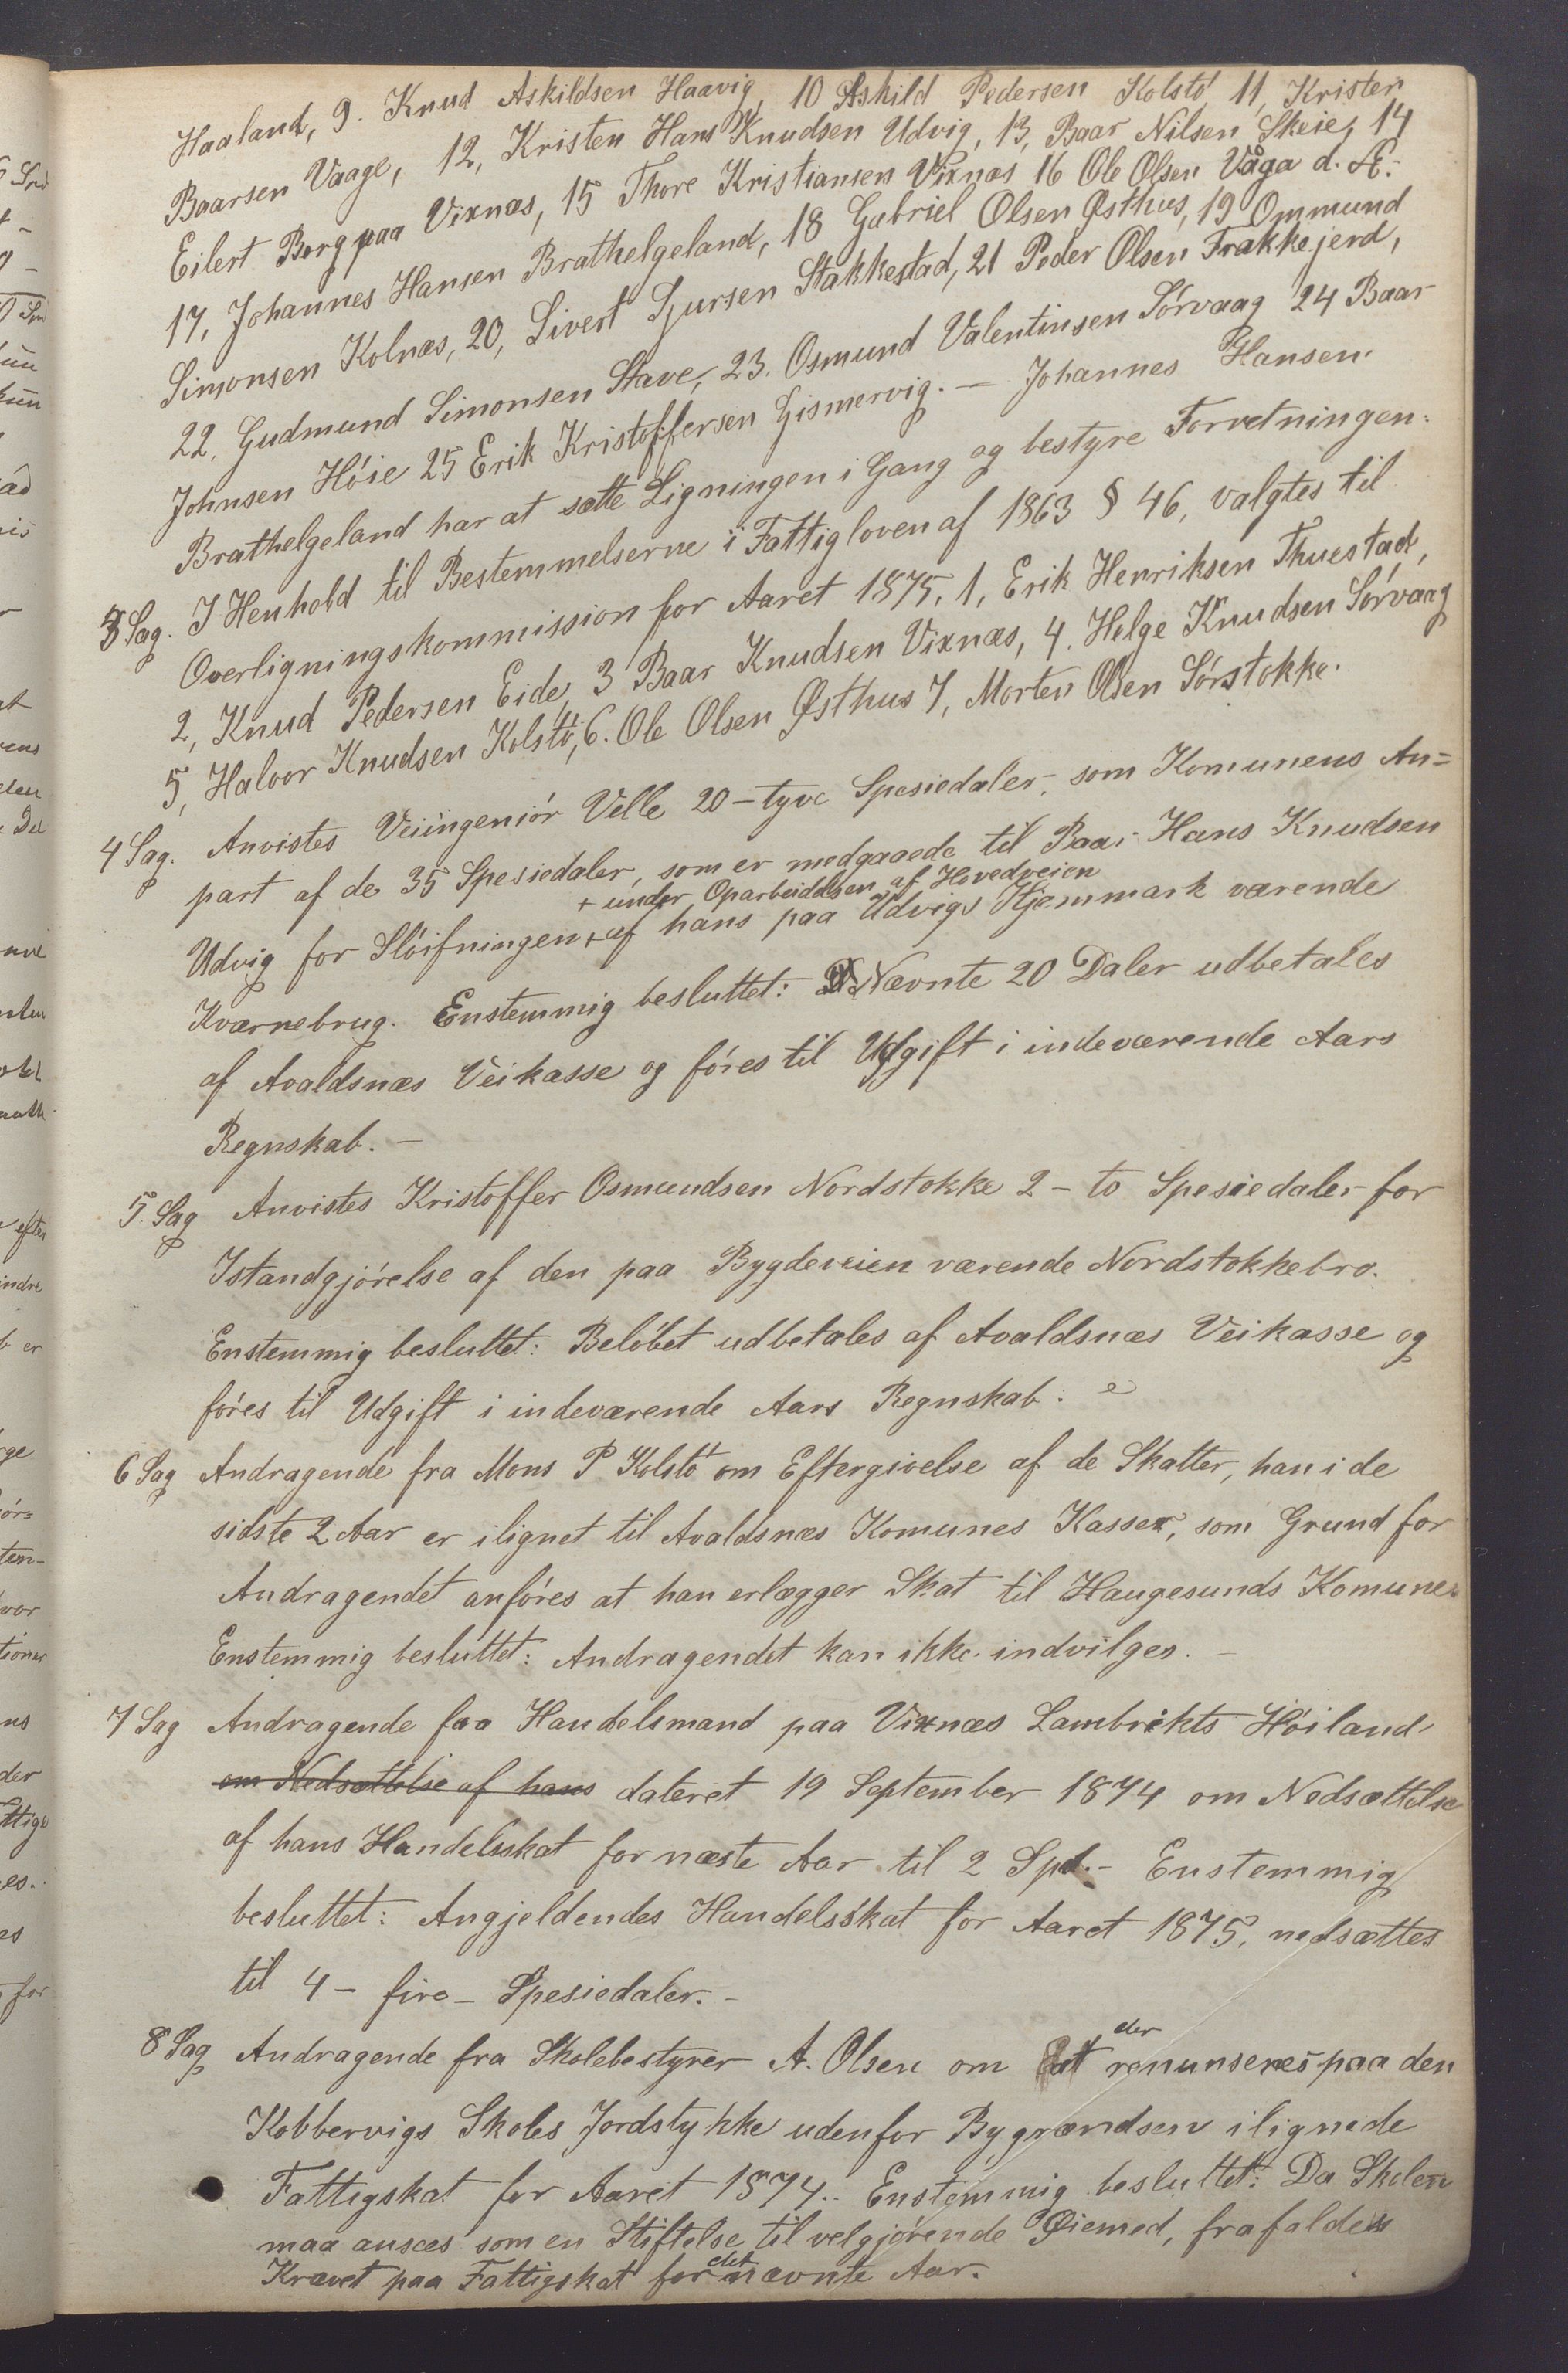 Haaland, 9. Knud Askildsen Haavig, 10 Askild Pedersen Kolstö 11, Kristen
Baarsen Vaage, 12, Kristen Hans Knudsen Udvig, 13, Baar Nilsen Skeie, 14
Eilert Borg paa Vixnæs, 15 Thore Kristiansen Vixnæs 16 Ole Olsen Våga d. Æ.
17, Johannes Hansen Brathelgeland, 18 Gabriel Olsen Østhus, 19 Ommund
Simonsen Kolnæs, 20, Sivert Sjursen Stakkestad, 21 Peder Olsen Frækkejerd,
22, Gudmund Simonsen Stave, 23. Osmund Valentinsen Sörvaag 24 Baar
Johnsen Höie 25 Erik Kristoffersen Gismervig. — Johannes Hansen
Brathelgeland har at sætte Ligningen i Gang og bestyre Forretningen.
3 Sag. I Henhold til Bestemmelserne i Fattigloven af 1863 § 46, valgtes til
Overligningskommission for Aaret 1875, 1, Erik Henriksen Thuestad,
2, Knud Pedersen Eide, 3 Baar Knudsen Vixnæs, 4. Helge Knudsen Sörvaag
5, Halvor Knudsen Kolstö, 6. Ole Olsen Østhus 7, Morten Olsen Sörstokke.
4 Sag. Anvistes Veiingeniör Velle 20 – tyve Spesiedaler, som Komunens An=
part af de 35 Spesiedaler, som er medgaaede til Baar Hans Knudsen
+ under Oparbeidelsen af Hovedveien
Udvig for Slöifningen + af hans paa Udvigs Hjemmark værende
Kværnebrug. Enstemmig besluttet: Nævnte 20 Daler udbetales
af Avaldsnæs Veikasse og föres til Udgift i indeværende Aars
Regnskab. —
5. Sag Anvistes Kristoffer Osmundsen Nordstokke 2 – to Spesiedaler for
Istandgjörelse af den paa Bygdeveien værende Nordstokkebro.
Enstemmig besluttet: Belöbet udbetales af Avaldsnæs Veikasse og
föres til Udgift i indeværende Aars Regnskab.
6 Sag Andragende fra Mons P Kolstö om Eftergivelse af de Skatter, han i de
sidste 2 Aar er ilignet til Avaldsnæs Komunes Kasser, som Grund for
Andragendet anföres at han erlægger Skat til Haugesunds Komune.
Enstemmig besluttet: Andragendet kan ikke indvilges. –
7 Sag Andragende fra Handelsmand paa Vixnæs Lambrikts Höiland
om Nedsættelse af hans dateret 19 September 1874 om Nedsættelse
af hans Handelsskat for næste Aar til 2 Spd. – Enstemmig
besluttet: Angjeldendes Handelsskat for Aaret 1875, nedsættes
til 4 – fire – Spesiedaler. –
der
8 Sag Andragende fra Skolebestyrer A. Olsen om at renunseres paa den
Kobbervigs Skoles Jordstykke udenfor Bygrændsen ilignede
Fattigskat for Aaret 1874. Enstemmig besluttet: Da Skolen
maa ansees som en Stiftelse til velgjörende Øiemed, frafaldes
det
Kravet paa Fattigskat for nævnte Aar.